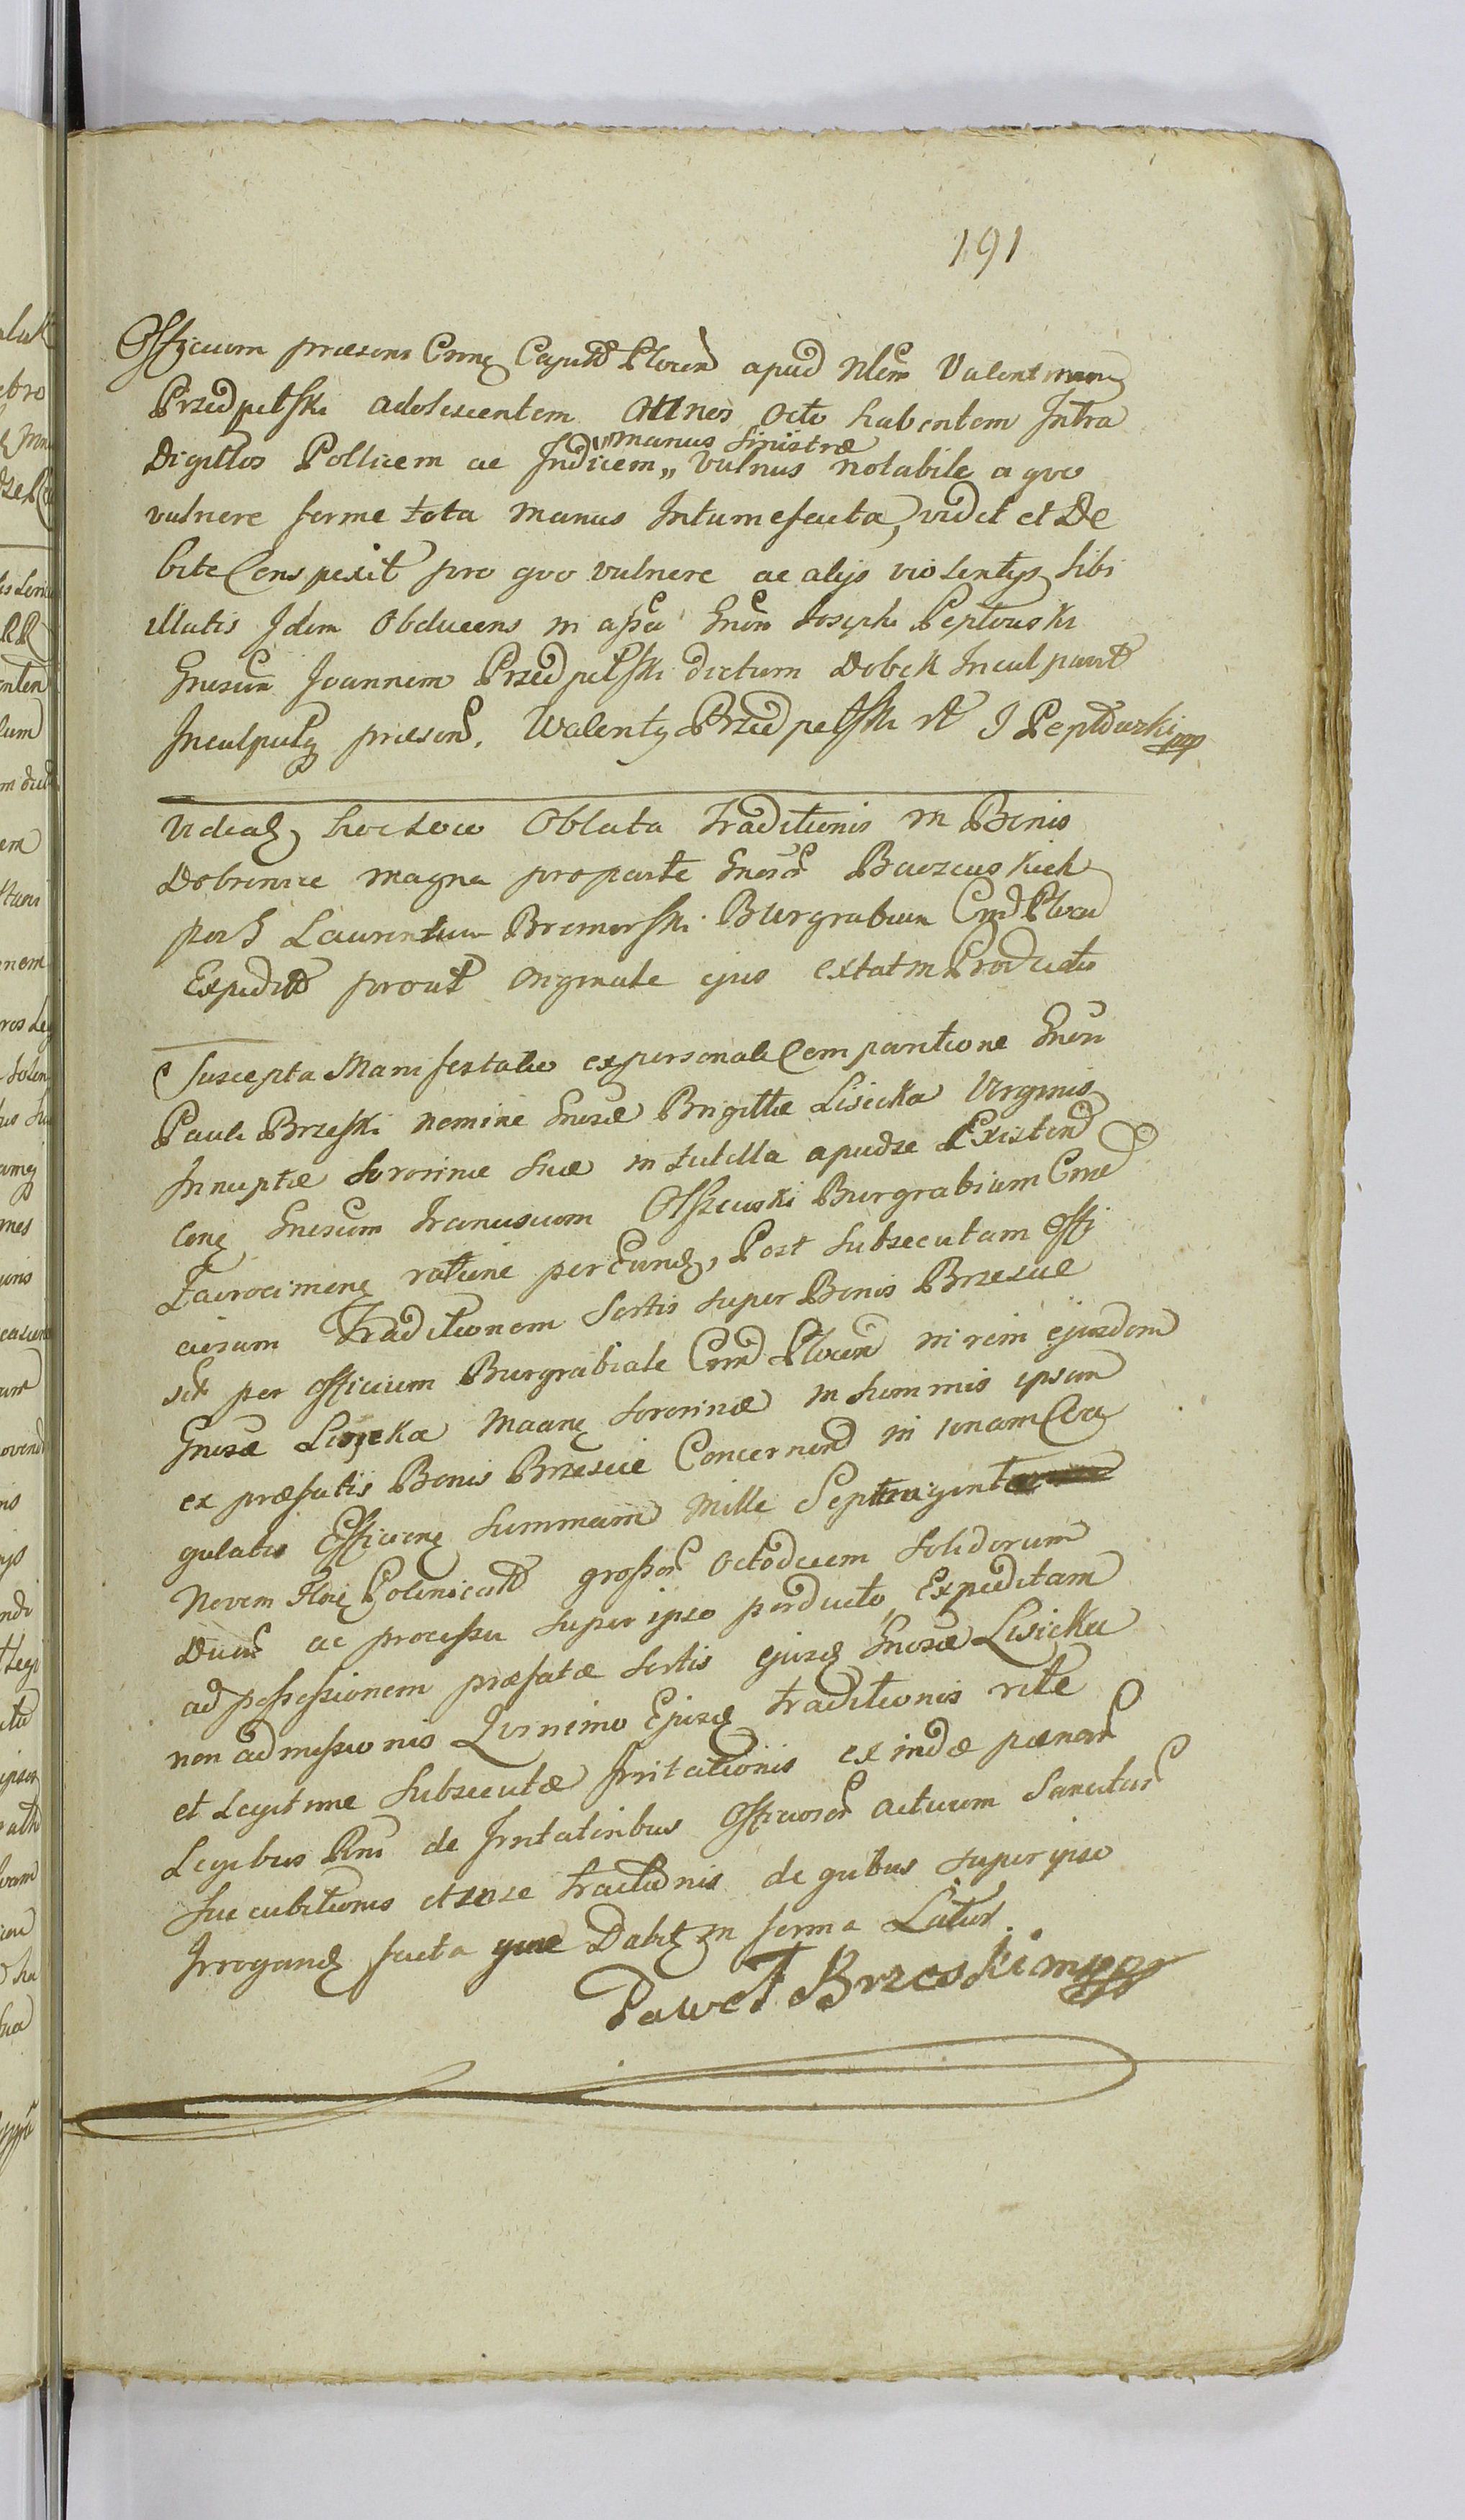 191
Officium praesens Crnse Capitle Plocen apud Nlem Valentinum
Przedpełski adolescentem Annos Octo habentem Intra
Digittos Pollicem ac Indicem „ manus sinistrae vulnus notabile a quo
vulnere ferme tota manus Intumefacta, vidit et De
bite Conspexit pro quo vulnere ac alijs violentijs sibi
illatis Idem Obducens in assa Gnen Josephi Peplowski
Gnesum Joannem Przedpełski dictum Dobek Inculpavit
Inculpatq praesen. Walenty Przedpełski et J Peplowski mpp
Videas hoc loco Oblata Traditionis in Bonis
Dobrenice magna pro parte Gnesor
per G Laurentium Burgrabium Crnd Plocen
Expedit prout originale ejus extat in Productis
Suscepta Manifestatio ex personali Comparitione Gnen
Pauli Brzeski nomine Gnesae Brigittae Lisicka Virginis
Innuptae sororinae suae in tutella apud se Existend
Conq Gnesum Franciscum Olszewski Burgrabium Crne
ratione per Eund, Post subsecutam Offi
ciosam Traditionem Sortis super Bonis Brzescie
sit per officium Burgrabiale Crnd Plocen in rem ejusdem
Gnesae Lisicka sororinae in summis ipsam
ex praefatis Bonis Brzescie Concernend in unam Coa
gulatis Efficienq summam Mille Septingenta
Novem Flor Polonicat grossor Octodecem solidorum
Duor ac processu super ipso perducto, Expeditam
ad possessionem praefatae sortis ejusd Gnesae Lisicka
non admissionis Quinimo Ejusd traditionis rite
et Legitime subsecutae Irritationis exindae paenar
Legibus Rni de Irritatoribus Officiosor actuum Sancitar
succubitionis et sese tractionis de quibus super ipso
Irrogand facta quae Dabit in forma Latior.
Paweł Brzeski mpp